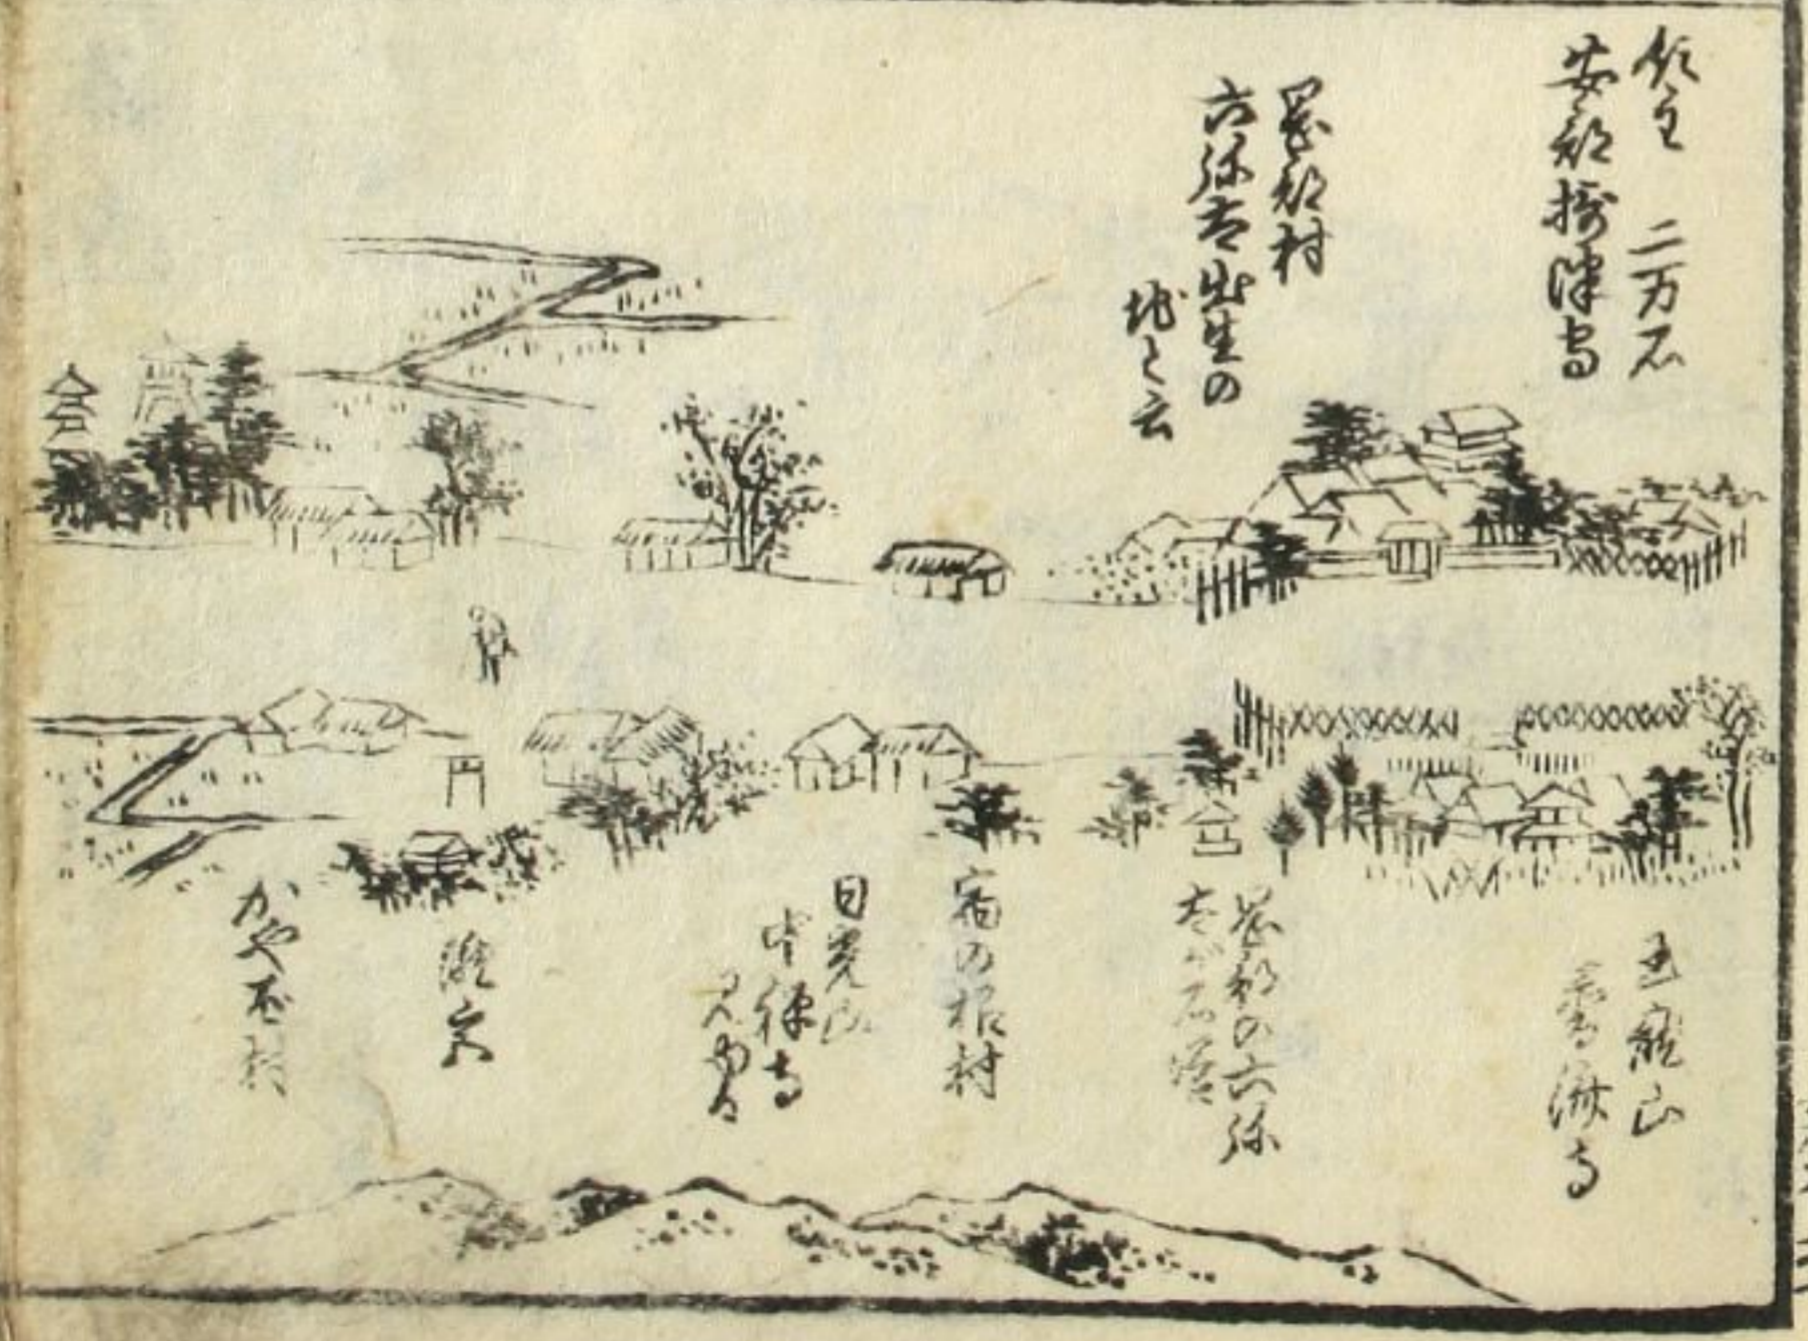 領主 二万石
安部摂津守
岡部村
六弥太出生の
地と云
玉龍山
寺
岡部の六弥
太が石塔
宿の根村
日光山
中禅寺
見ゆる
かや場村